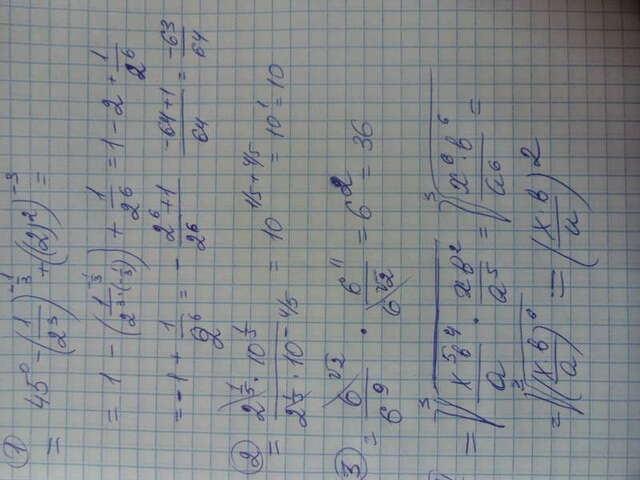 ① 45⁰ - (1/2³)^(-1/3) + ((2)²)⁻³ =
= 1 - (1/2^(3·(-1/3))) + 1/2⁶ = 1 - 2 + 1/2⁶
= -1 + 1/2⁶ = - 2⁶+1/2⁶ -64+1/64 = -63/64
② 2^(1/5) · 10^(1/5)
= 2^(1/5) · 10^(-4/5) = 10^(1/5+4/5) = 10¹ = 10
③ = 6^√2/6⁹ · 6¹¹/6^√2 = 6² = 36
= ³√(x⁵b⁴/a · xb²/a⁵) = ³√(x⁶·b⁶/a⁶) =
= ³√((xb/a)⁶) = (xb/a)²